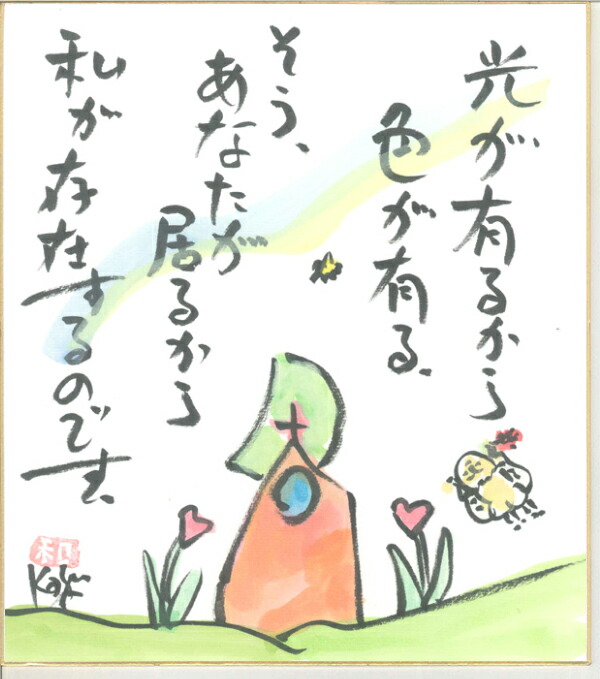 光が有るから
色が有る、
そう、
あなたが
居るから
私が存在するのです、
和